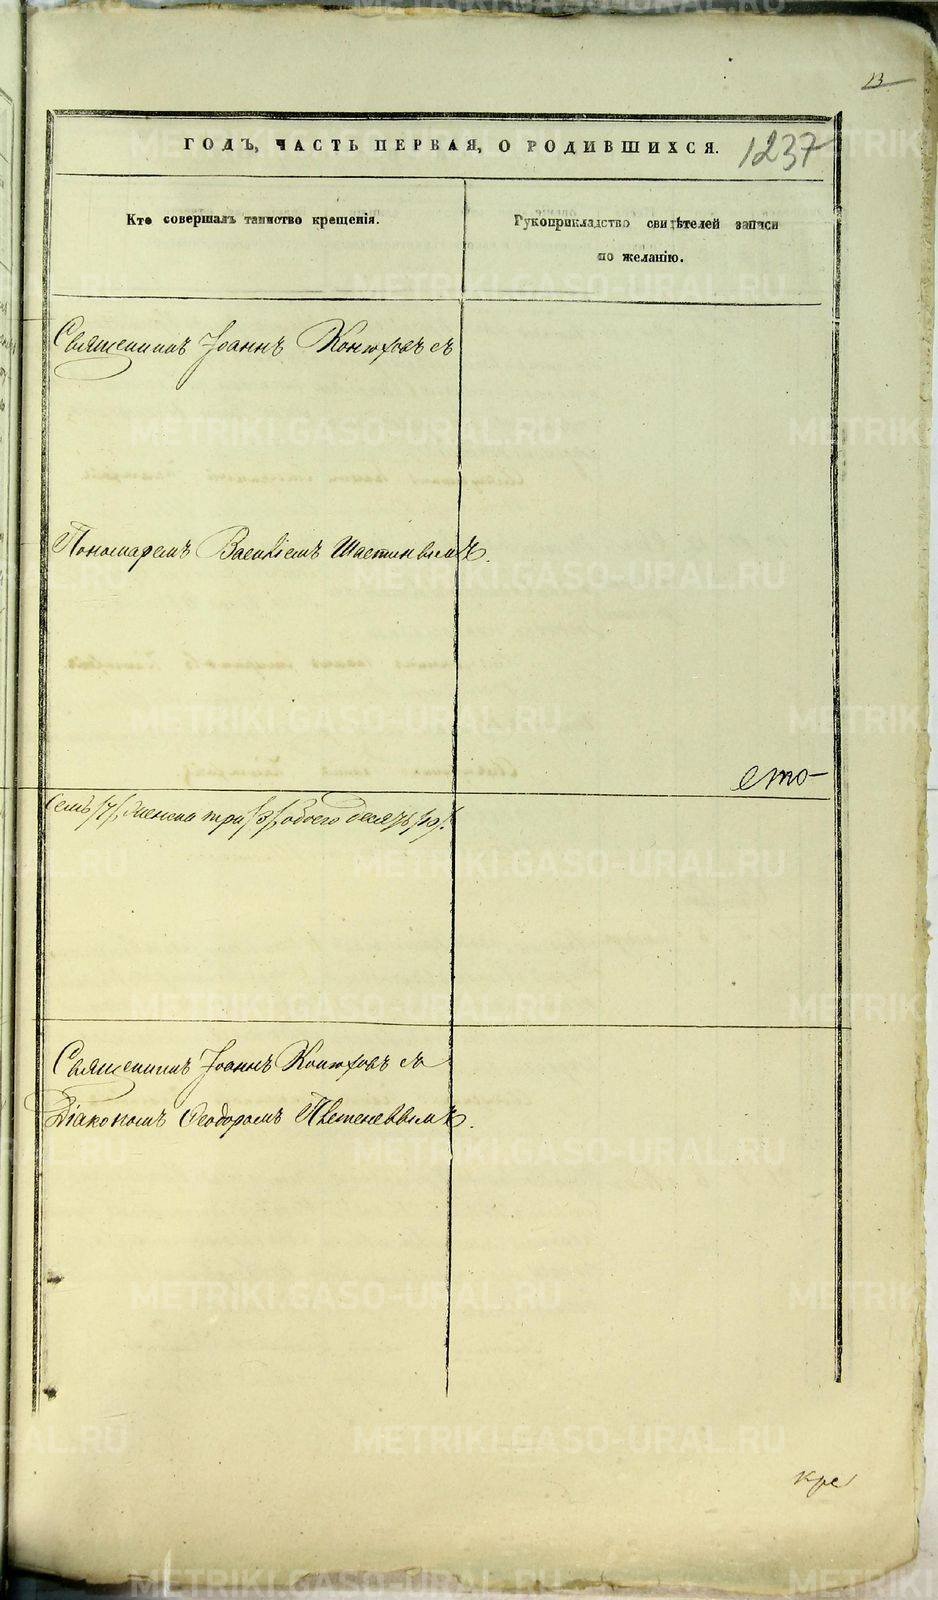 13
ГОДЪ, ЧАСТЬ ПЕРВАЯ, О РОДИВШИХСЯ.
1237
Кто совершалъ таинство крещенія.
Рукоприкладство свидѣтелей записи
по желанію.
Священникъ Іоаннъ Конюховъ съ
Пономаремъ Василіемъ
сто-
Семь /7/, женска три /3/, обоего десять /10/.
Священникъ Іоаннъ Конюховъ съ
Діакономъ Ѳеодоромъ
кре
METRIKI.GASO-URAL.RU